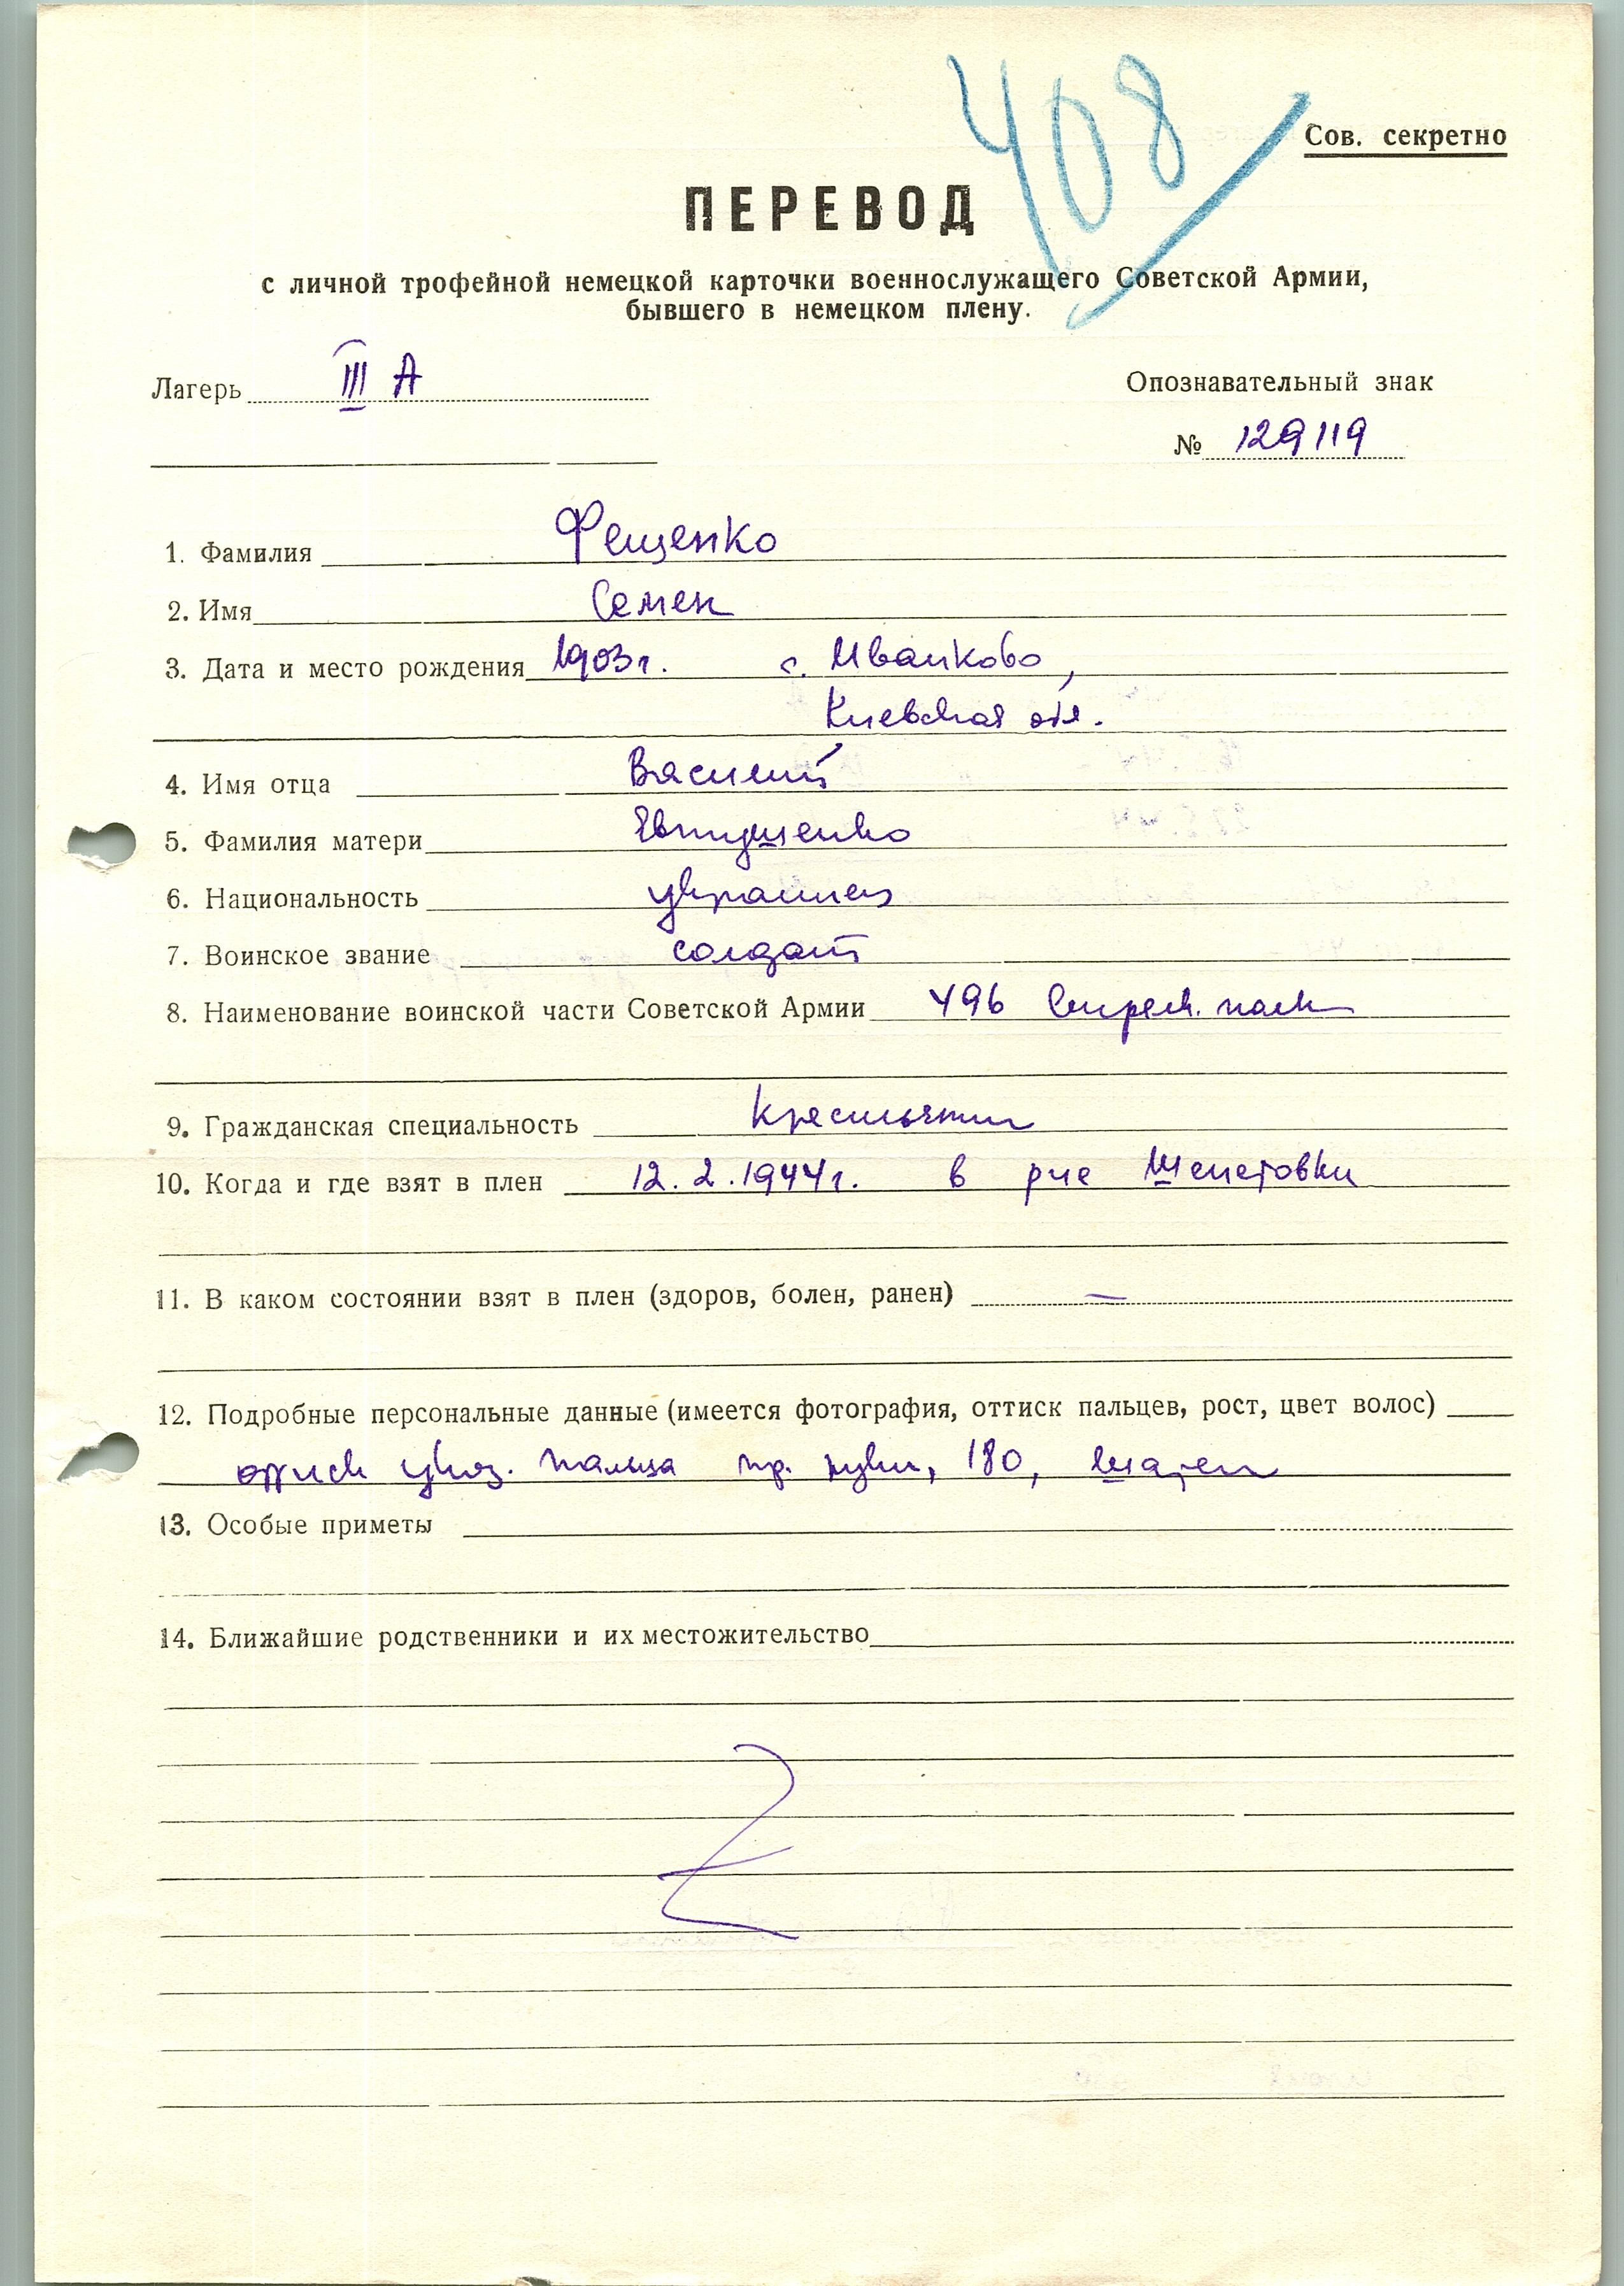 408
Сов. секретно
ПЕРЕВОД
с личной трофейной немецкой карточки военнослужащего Советской Армии,
бывшего в немецком плену.
Лагерь III А
Опознавательный знак
№ 129119
1. Фамилия Фещенко
2. Имя Семен
3. Дата и место рождения 1903 г. с. Иванково,
Киевская обл.
4. Имя отца Василий
5. Фамилия матери Евтушенко
6. Национальность украинец
7. Воинское звание солдат
8. Наименование воинской части Советской Армии 496 стрелк. полк
9. Гражданская специальность крестьянин
10. Когда и где взят в плен 12.2.1944 г. в р-не Шепетовки
11. В каком состоянии взят в плен (здоров, болен, ранен) —
12. Подробные персональные данные (имеется фотография, оттиск пальцев, рост, цвет волос)
оттиск указ. пальца пр. руки, 180, шатен
13. Особые приметы
14. Ближайшие родственники и их местожительство